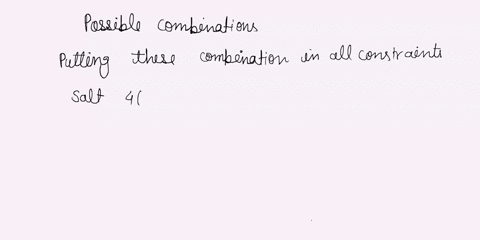 Possible combinations
Putting these combination in all constraints
Salt 4(